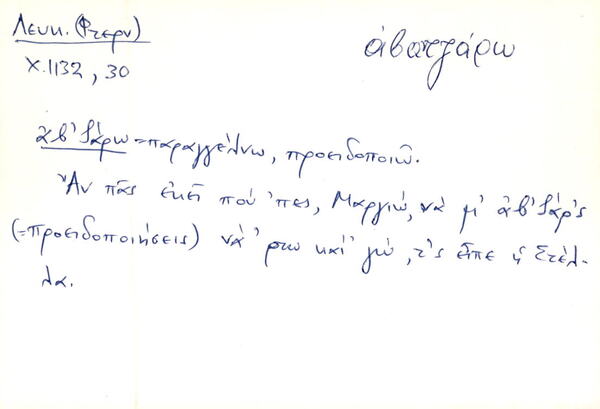 Λευκ. (Φτερν)
χ.1132, 30
ἀβατζάρω
ἀβ'ζάρω = παραγγέλνω, προειδοποιῶ.
Ἄν πᾶς ἐκεῖ πού 'πες, Μαργιώ, νά μ' ἀβ'ζάρ'ς
(=προειδοποιήσεις) νά 'ρτω καί 'γώ, τ'ς εἶπε ἡ Στέλ-
λα.